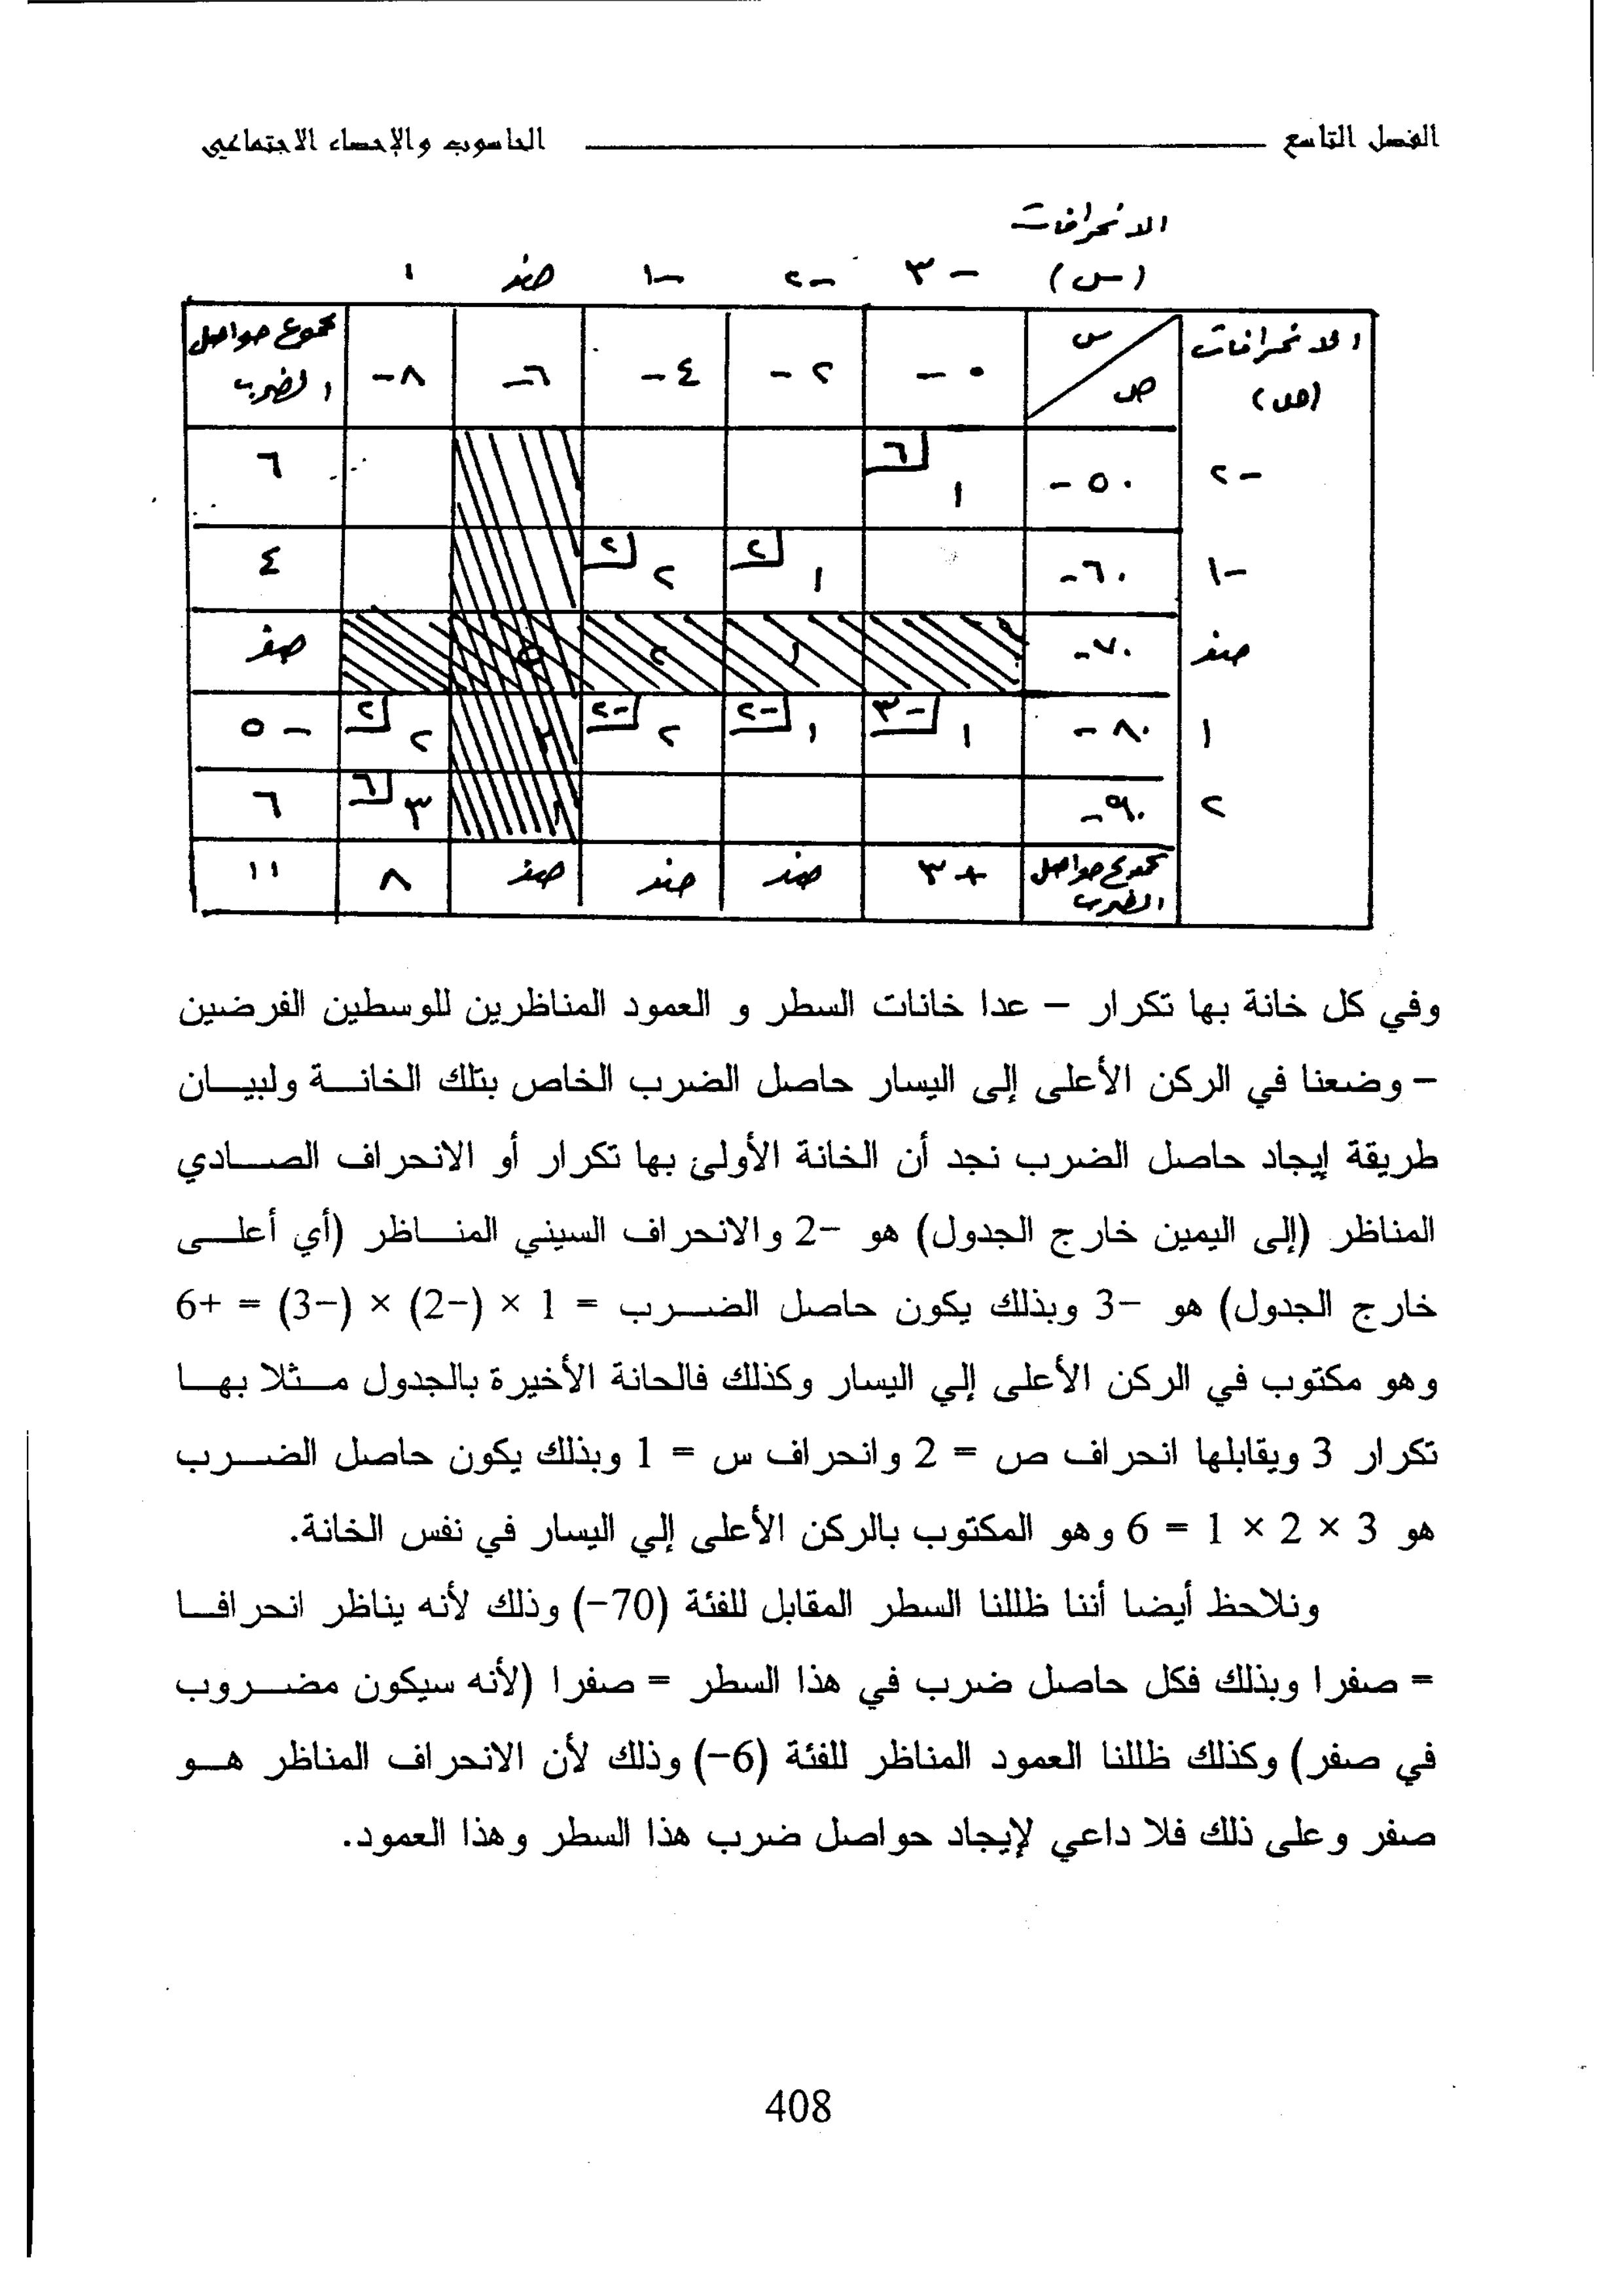 الفصل التاسع الحاسوب والإحصاء الاجتماعي
الانحرافات
(س) ٣ – ٢ – ١ – صفر ١
الانحرافات (ص) س ص ٠ – ٢ – ٤ – ٦ – ٨ – مجموع حواصل الضرب
٢ – ٥٠ – ٦ ١ ٦
١ – ٦٠ – ٢ ١ ٢ ٢ ٤
صفر ٧٠ – ١ ٢ ٥ صفر
١ ٨٠ – ٣ – ١ ٢ – ١ ٢ – ٢ ٢ ٢ ٢ ٥ –
٢ ٩٠ – ١ ٦ ٣ ٦
مجموع حواصل الضرب ٣ + صفر صفر صفر ٨ ١١
وفي كل خانة بها تكرار – عدا خانات السطر و العمود المناظرين للوسطين الفرضين
– وضعنا في الركن الأعلى إلى اليسار حاصل الضرب الخاص بتلك الخانة ولبيان
طريقة إيجاد حاصل الضرب نجد أن الخانة الأولى بها تكرار أو الانحراف الصادي
المناظر (إلى اليمين خارج الجدول) هو –2 والانحراف السيني المناظر (أي أعلى
خارج الجدول) هو –3 وبذلك يكون حاصل الضرب = 1 × (–2) × (–3) = +6
وهو مكتوب في الركن الأعلى إلي اليسار وكذلك فالحانة الأخيرة بالجدول مثلا بها
تكرار 3 ويقابلها انحراف ص = 2 وانحراف س = 1 وبذلك يكون حاصل الضرب
هو 3 × 2 × 1 = 6 وهو المكتوب بالركن الأعلى إلي اليسار في نفس الخانة.
ونلاحظ أيضا أننا ظللنا السطر المقابل للفئة (70–) وذلك لأنه يناظر انحرافا
= صفرا وبذلك فكل حاصل ضرب في هذا السطر = صفرا (لأنه سيكون مضروب
في صفر) وكذلك ظللنا العمود المناظر للفئة (6–) وذلك لأن الانحراف المناظر هو
صفر وعلى ذلك فلا داعي لإيجاد حواصل ضرب هذا السطر وهذا العمود.
408